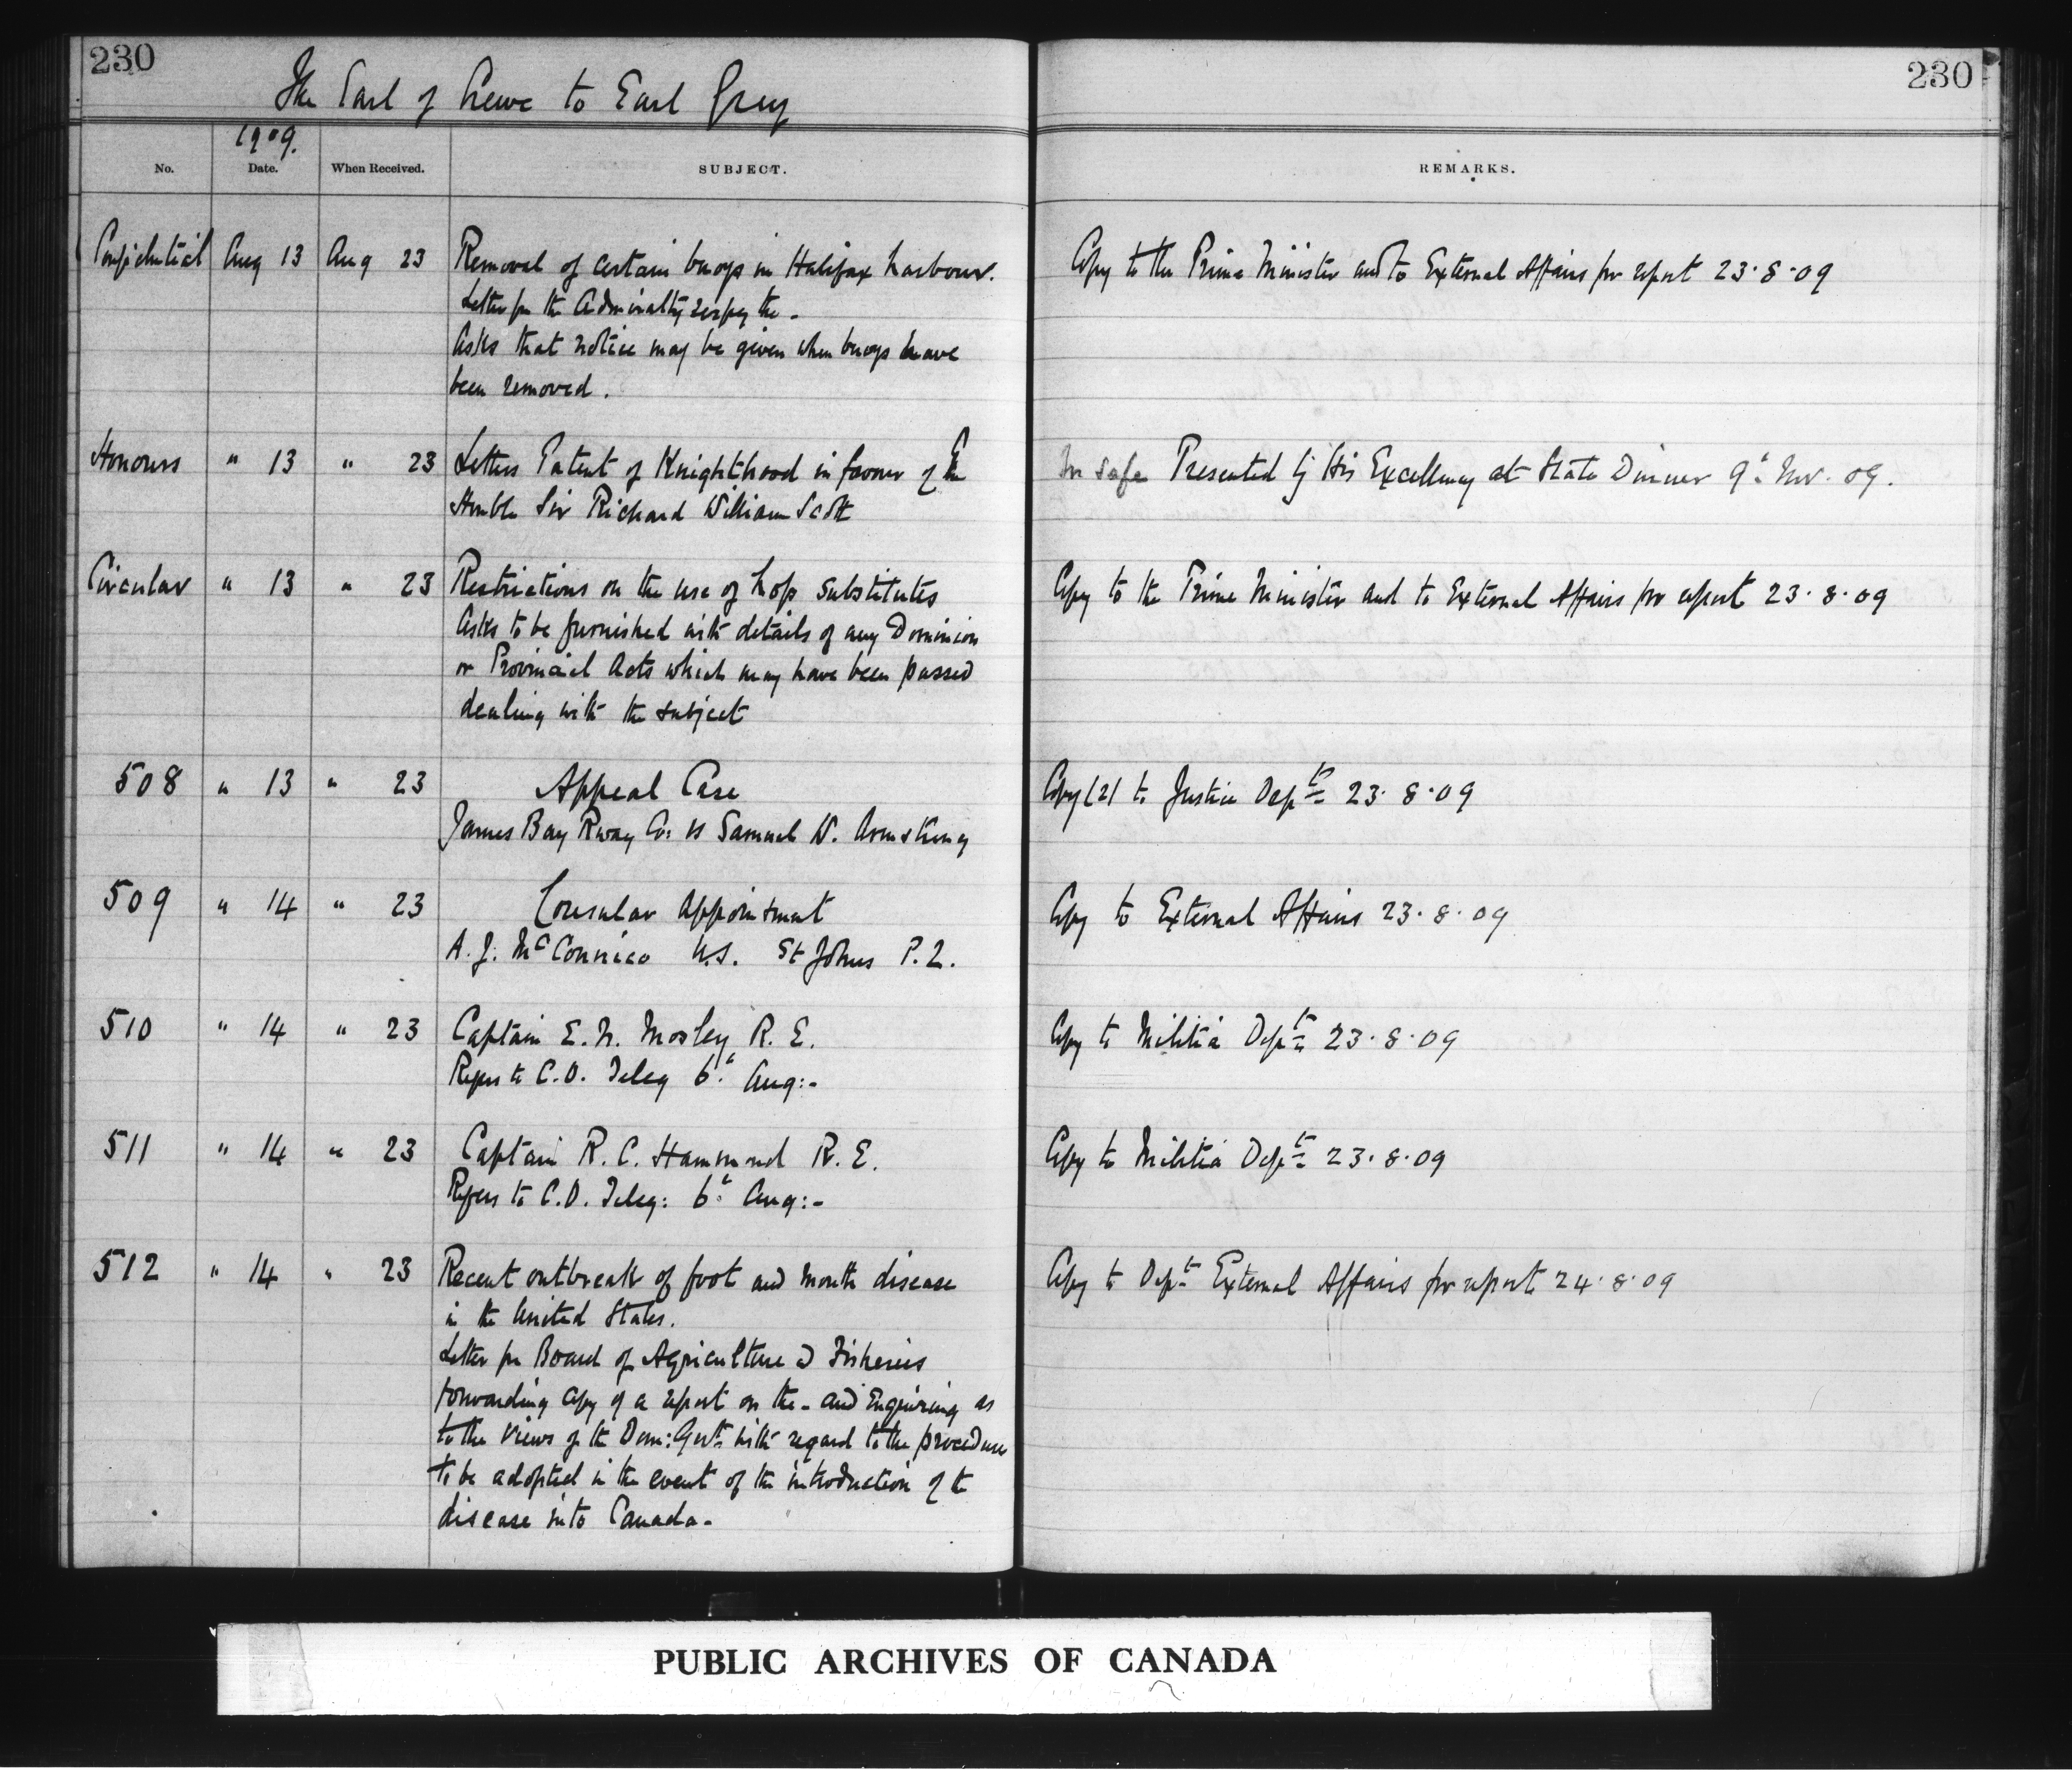 230
230
The Earl of Crewe to Earl Grey
1909.
No. Date. When Received. SUBJECT. REMARKS.
Confidential Aug 13 Aug 23 Removal of certain buoys in Halifax harbour. Copy to the Prime Minister and to External Affairs for report 23.8.09
Letter fm the Admiralty respg the -
Asks that notice may be given when buoys have
been removed.
Honours " 13 " 23 Letters Patent of Knighthood in favour of The In safe Presented by His Excellency at State Dinner 9th Nov. 09.
Honble Sir Richard William Scott
Circular " 13 " 23 Restrictions on the use of hop substitutes Copy to the Prime Minister and to External Affairs for report 23.8.09
Asks to be furnished with details of any Dominion
or Provincial Acts which may have been passed
dealing with the subject
508 " 13 " 23 Appeal Case Copy (2) to Justice Dept 23.8.09
James Bay Rway Co: vs Samuel W. Armstrong
509 " 14 " 23 Consular Appointment Copy to External Affairs 23.8.09
A. J. McConnico U.S. St Johns P.Q.
510 " 14 " 23 Captain E. N. Mosley R. E. Copy to Militia Dept 23.8.09
Refers to C.O. Teleg 6th Aug:-
511 " 14 " 23 Captain R. C. Hammond R. E. Copy to Militia Dept 23.8.09
Refers to C.O. Teleg: 6th Aug:-
512 " 14 " 23 Recent outbreak of foot and mouth disease Copy to Dept External Affairs for report 24.8.09
in the United States.
Letter fm Board of Agriculture & Fisheries
forwarding copy of a report on the - and Enquiring as
to the views of the Dom: Govt with regard to the procedure
to be adopted in the event of the introduction of the
disease into Canada.
PUBLIC ARCHIVES OF CANADA